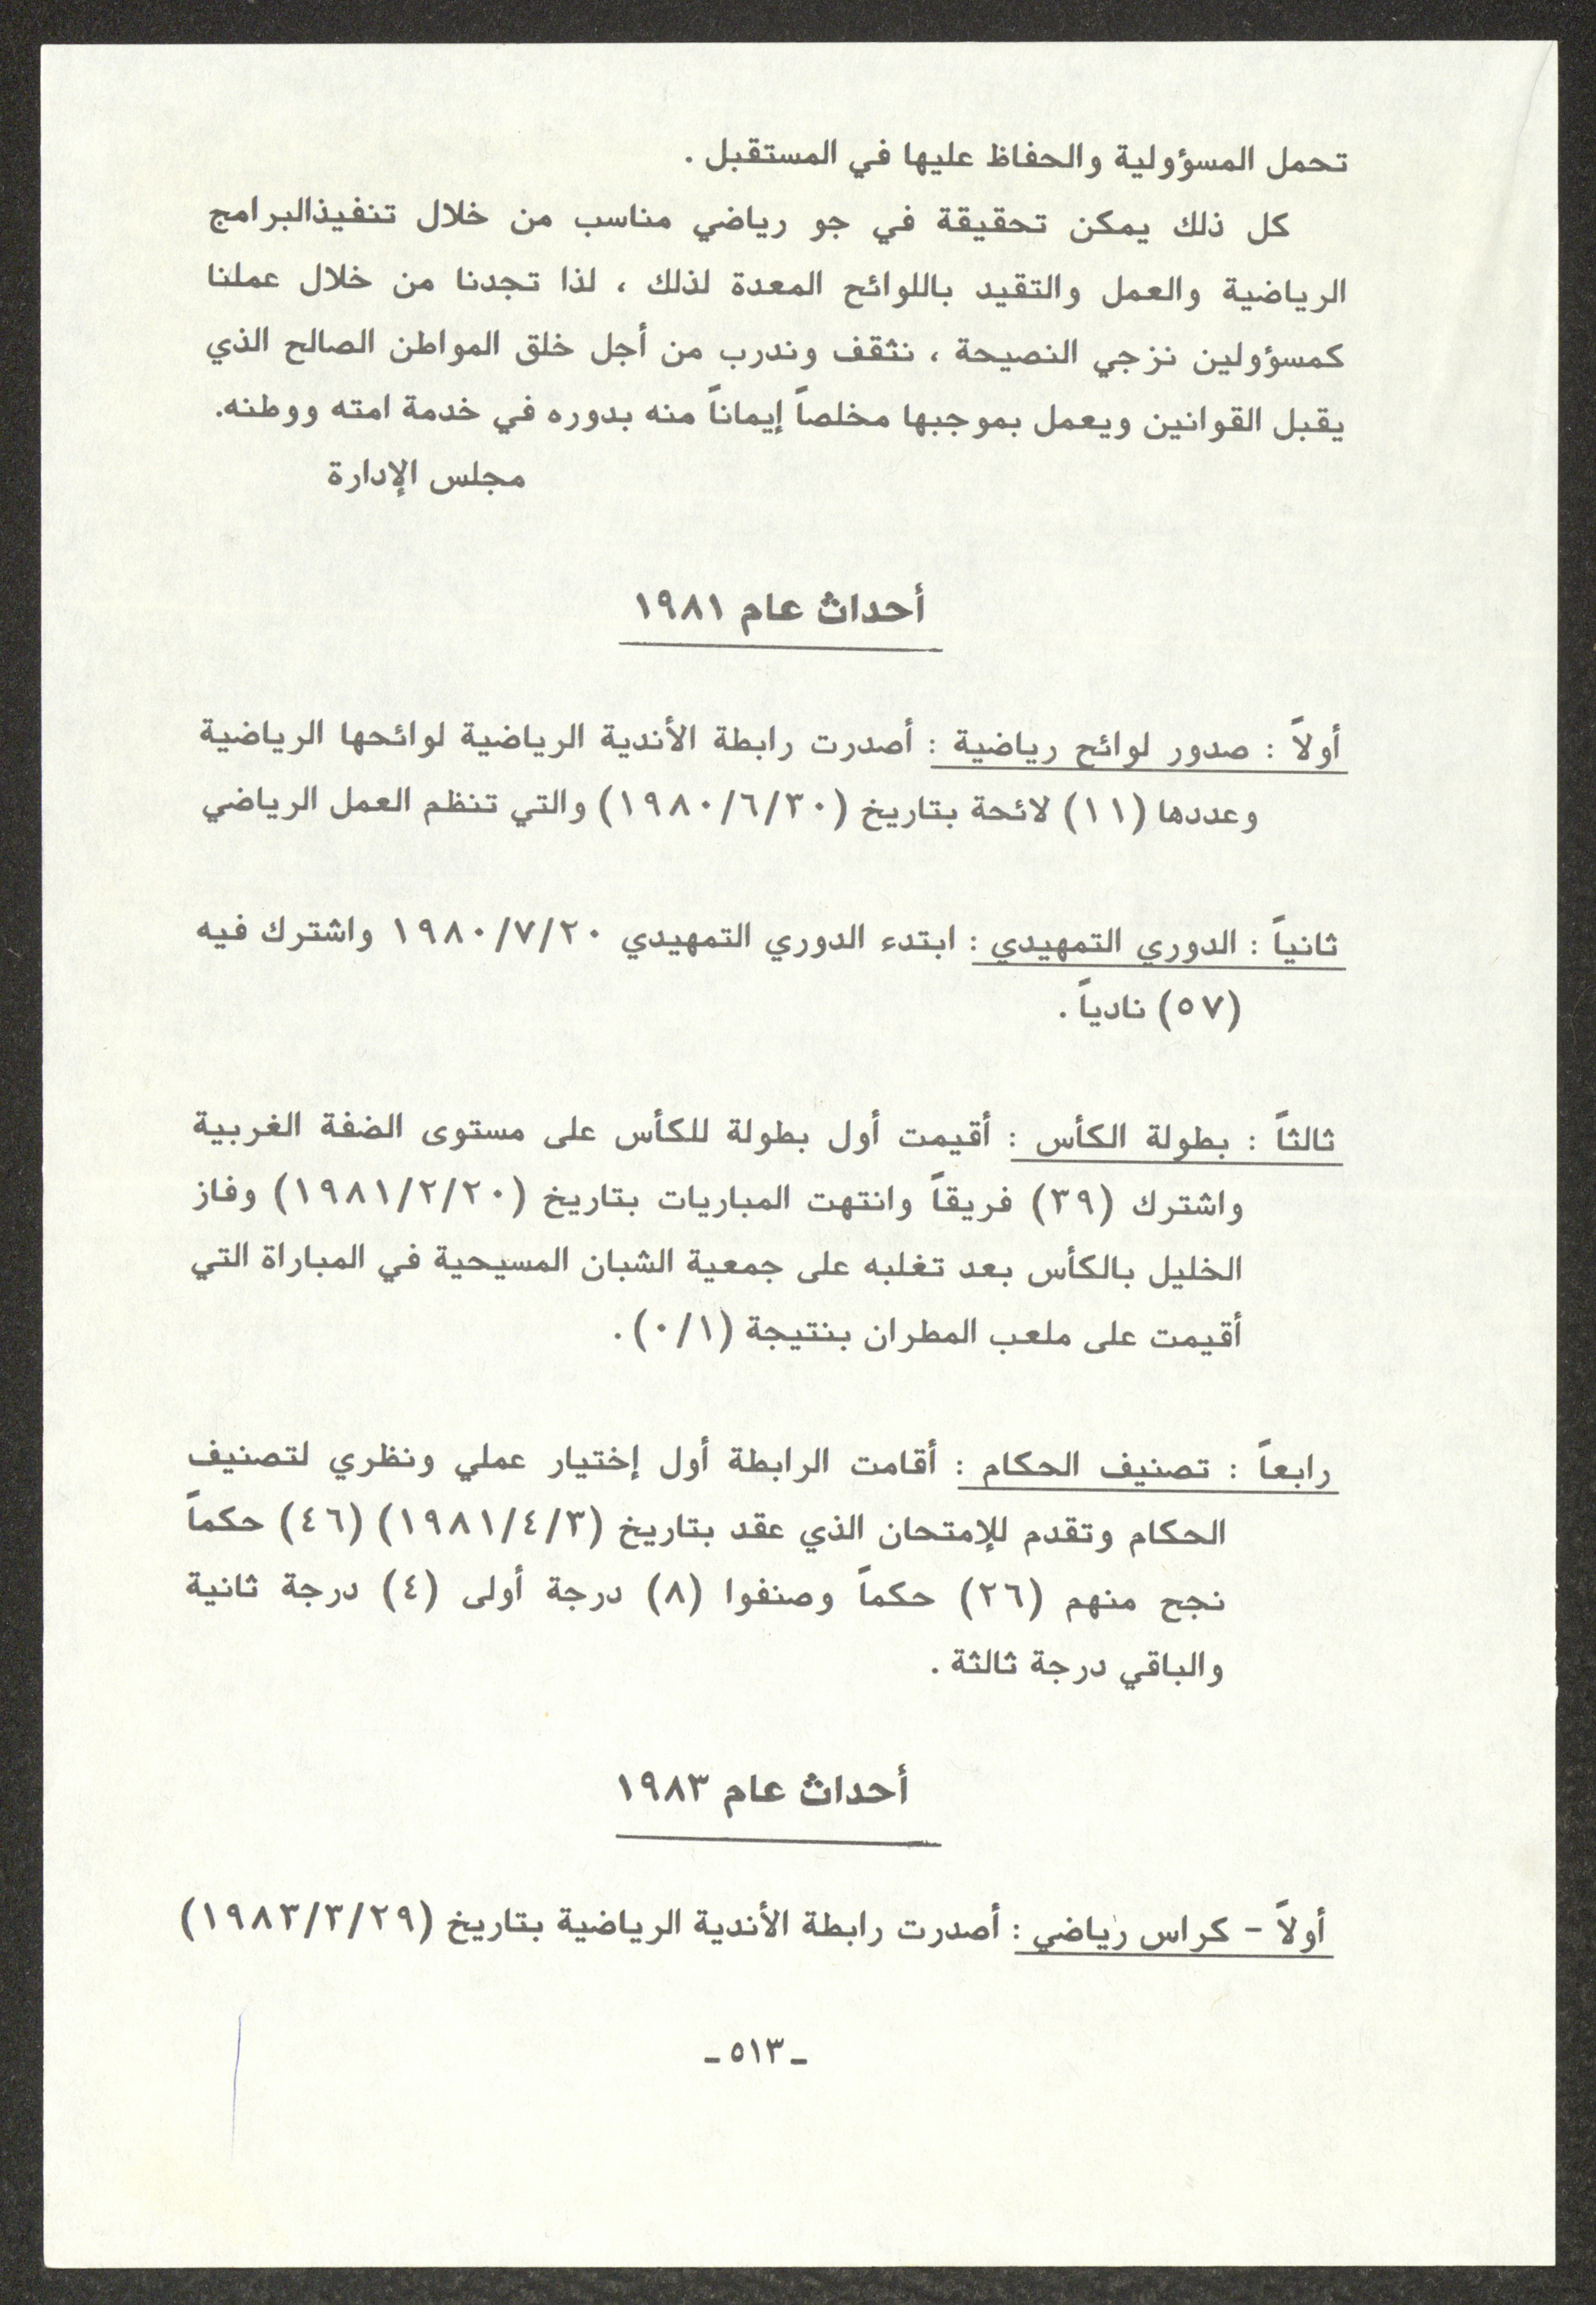 تحمل المسؤولية والحفاظ عليها في المستقبل .
كل ذلك يمكن تحقيقة في جو رياضي مناسب من خلال تنفيذالبرامج
الرياضية والعمل والتقيد باللوائح المعدة لذلك ، لذا تجدنا من خلال عملنا
كمسؤولين نزجي النصيحة ، نثقف وندرب من أجل خلق المواطن الصالح الذي
يقبل القوانين ويعمل بموجبها مخلصاً إيماناً منه بدوره في خدمة امته ووطنه.
مجلس الإدارة
أحداث عام ١٩٨١
أولاً : صدور لوائح رياضية : أصدرت رابطة الأندية الرياضية لوائحها الرياضية
وعددها (١١) لائحة بتاريخ (١٩٨٠/٦/٣٠) والتي تنظم العمل الرياضي
ثانياً : الدوري التمهيدي : ابتدء الدوري التمهيدي ١٩٨٠/٧/٢٠ واشترك فيه
(٥٧) نادياً .
ثالثاً : بطولة الكأس : أقيمت أول بطولة للكأس على مستوى الضفة الغربية
واشترك (٣٩) فريقاً وانتهت المباريات بتاريخ (١٩٨١/٢/٢٠) وفاز
الخليل بالكأس بعد تغلبه على جمعية الشبان المسيحية في المباراة التي
أقيمت على ملعب المطران بنتيجة (٠/١) .
رابعاً : تصنيف الحكام : أقامت الرابطة أول إختيار عملي ونظري لتصنيف
الحكام وتقدم للإمتحان الذي عقد بتاريخ (١٩٨١/٤/٣) (٤٦) حكماً
نجح منهم (٢٦) حكماً وصنفوا (٨) درجة أولى (٤) درجة ثانية
والباقي درجة ثالثة .
أحداث عام ١٩٨٣
أولاً - كراس رياضي : أصدرت رابطة الأندية الرياضية بتاريخ (١٩٨٣/٣/٢٩)
ـ ٥١٣ ـ